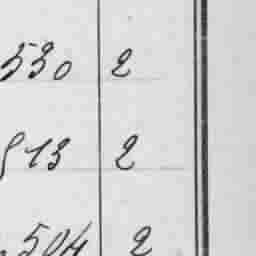 530 2
913 2
504 2